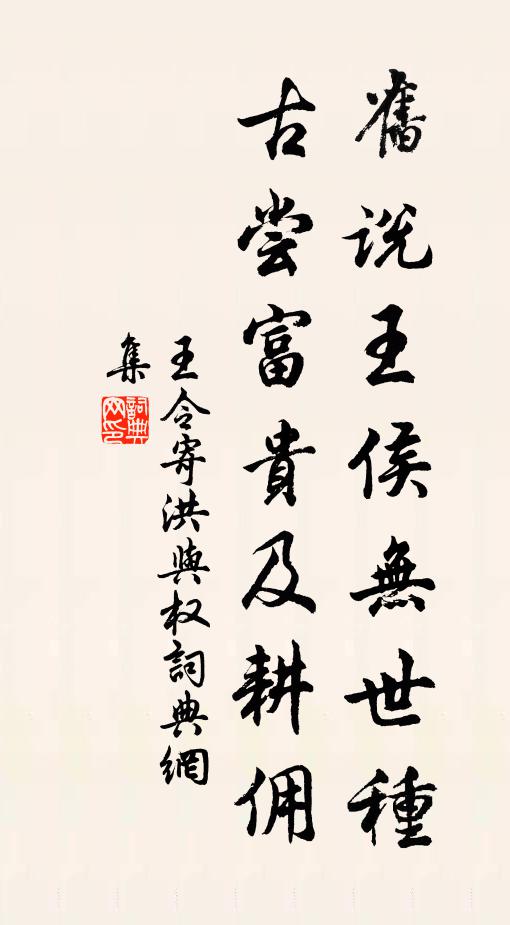 舊説王侯無世種
古嘗富貴及耕佣
王令寄洪與权詞典網
集
詞典网印